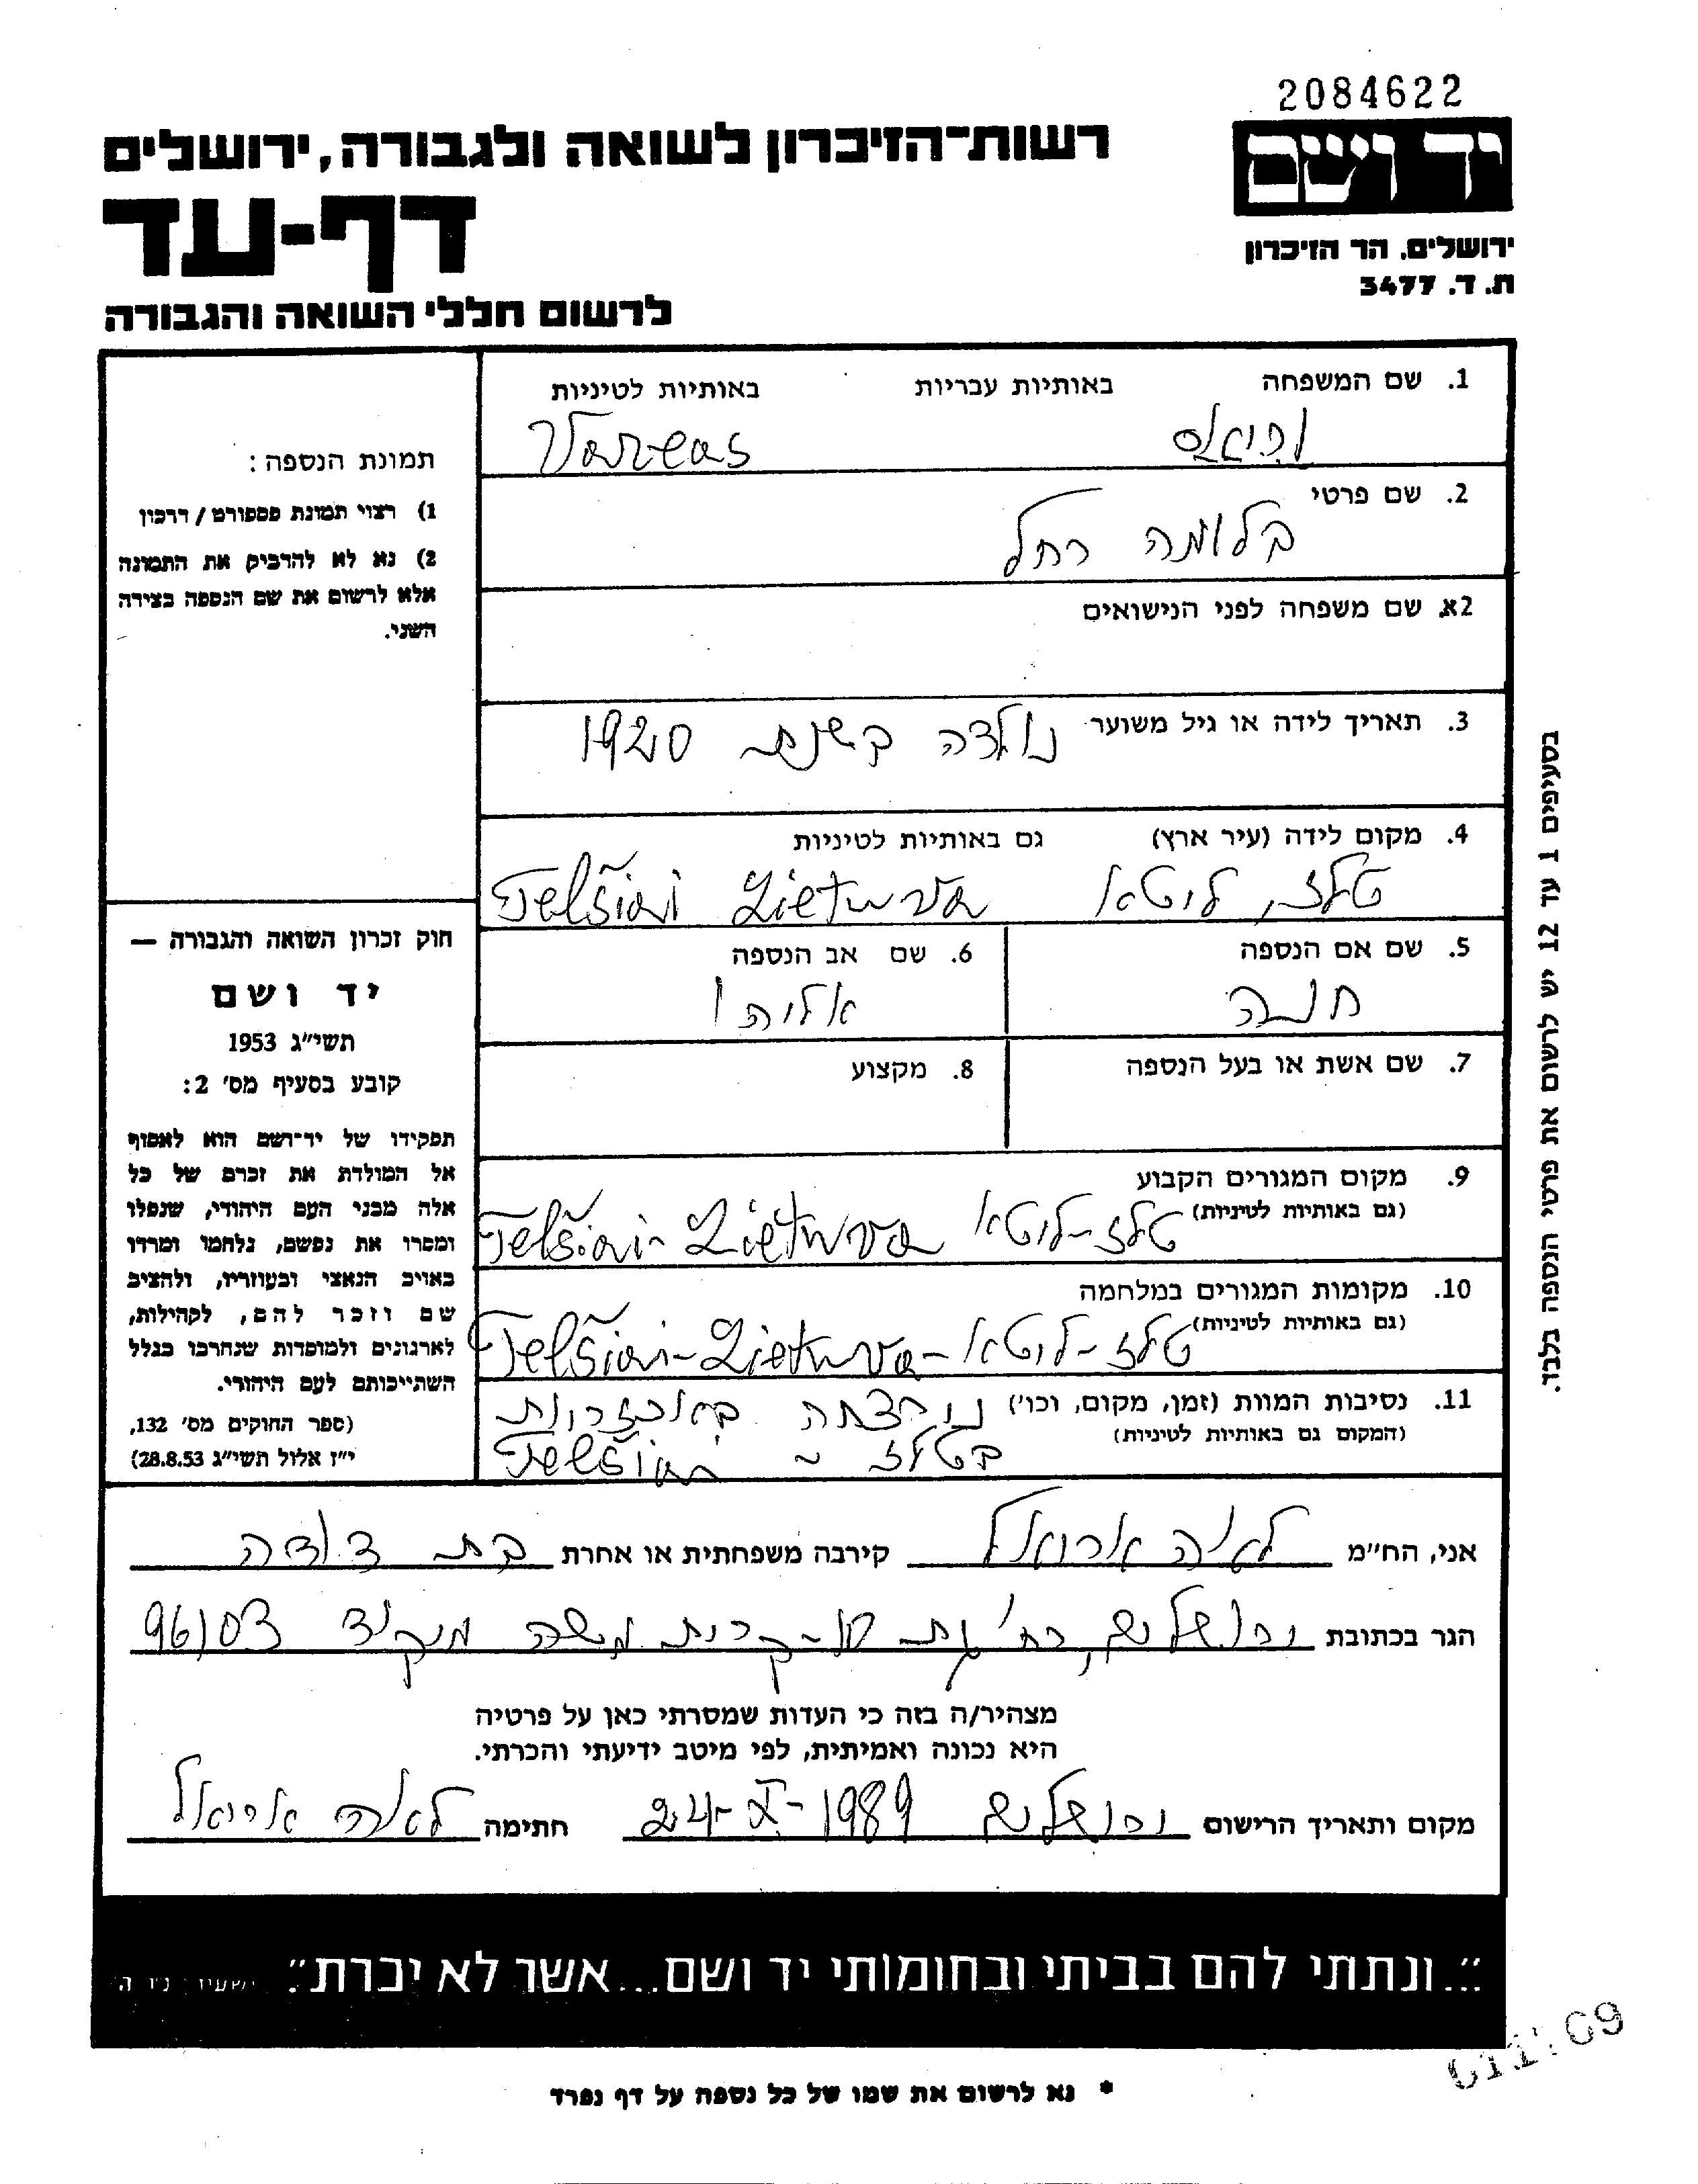 2084622
יד ושם
רשות-הזיכרון לשואה ולגבורה, ירושלים
דף-עד
לרשום חללי השואה והגבורה
ירושלים, הר הזיכרון
ת. ד. 3477
1. שם המשפחה באותיות עבריות באותיות לטיניות
Varеas
2. שם פרטי
בלומה רחל
2א. שם משפחה לפני הנישואים
3. תאריך לידה או גיל משוער נולדה בשנת 1920
4. מקום לידה (עיר ארץ) גם באותיות לטיניות
טלז, ליטא Telšiai Lietuva
5. שם אם הנספה
חנה
6. שם אב הנספה
אליהו
7. שם אשת או בעל הנספה
8. מקצוע
9. מקום המגורים הקבוע
(גם באותיות לטיניות) טלז-ליטא Telšiai- Lietuva
10. מקומות המגורים במלחמה
(גם באותיות לטיניות) טלז-ליטא- Telšiai-Lietuva
11. נסיבות המוות (זמן, מקום, וכו') נרצחה באכזריות
(המקום גם באותיות לטיניות) בטלז - Telšiai
תמונת הנספה:
1) רצוי תמונת פספורט/דרכון
2) נא לא להדביק את התמונה
אלא לרשום את שם הנספה בצידה
השני.
חוק זכרון השואה והגבורה —
יד ושם
תשי"ג 1953
קובע בסעיף מס' 2:
תפקידו של יד-ושם הוא לאסוף
אל המולדת את זכרם של כל
אלה מבני העם היהודי, שנפלו
ומסרו את נפשם, נלחמו ומרדו
באויב הנאצי ובעוזריו, ולהציב
שם וזכר להם, לקהילות,
לארגונים ולמוסדות שנחרבו בגלל
השתייכותם לעם היהודי.
(ספר החוקים מס' 132,
י"ז אלול תשי"ג 28.8.53)
בסעיפים 1 עד 12 יש לרשום את פרטי הנספה בלבד.
אני, הח"מ לאה אריאל קירבה משפחתית או אחרת בת דודה
הגר בכתובת ירושלים, רח' קרית משה מיקוד 96103
מצהיר/ה בזה כי העדות שמסרתי כאן על פרטיה
היא נכונה ואמיתית, לפי מיטב ידיעתי והכרתי.
מקום ותאריך הרישום ירושלים 24-X-1989 חתימה לאה אריאל
"...ונתתי להם בביתי ובחומותי יד ושם...אשר לא יכרת" ישעיהו נ"ו ה'
* נא לרשום את שמו של כל נספה על דף נפרד